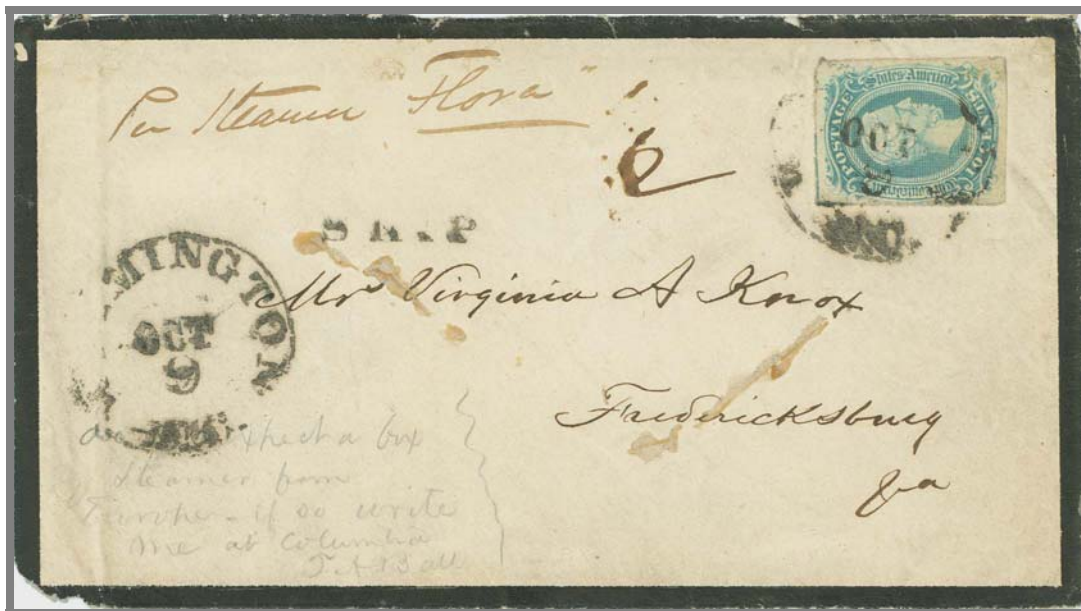 Per Steamer "Flora"
6
POSTAGE
States America
10 CENTS
OCT
SHIP
MINGTON
OCT
9
Mrs Virginia A Knox
Fredericksburg
Va
expect a box
Steamer from
Europe - if so write
me at Columbia
T. A. Ball